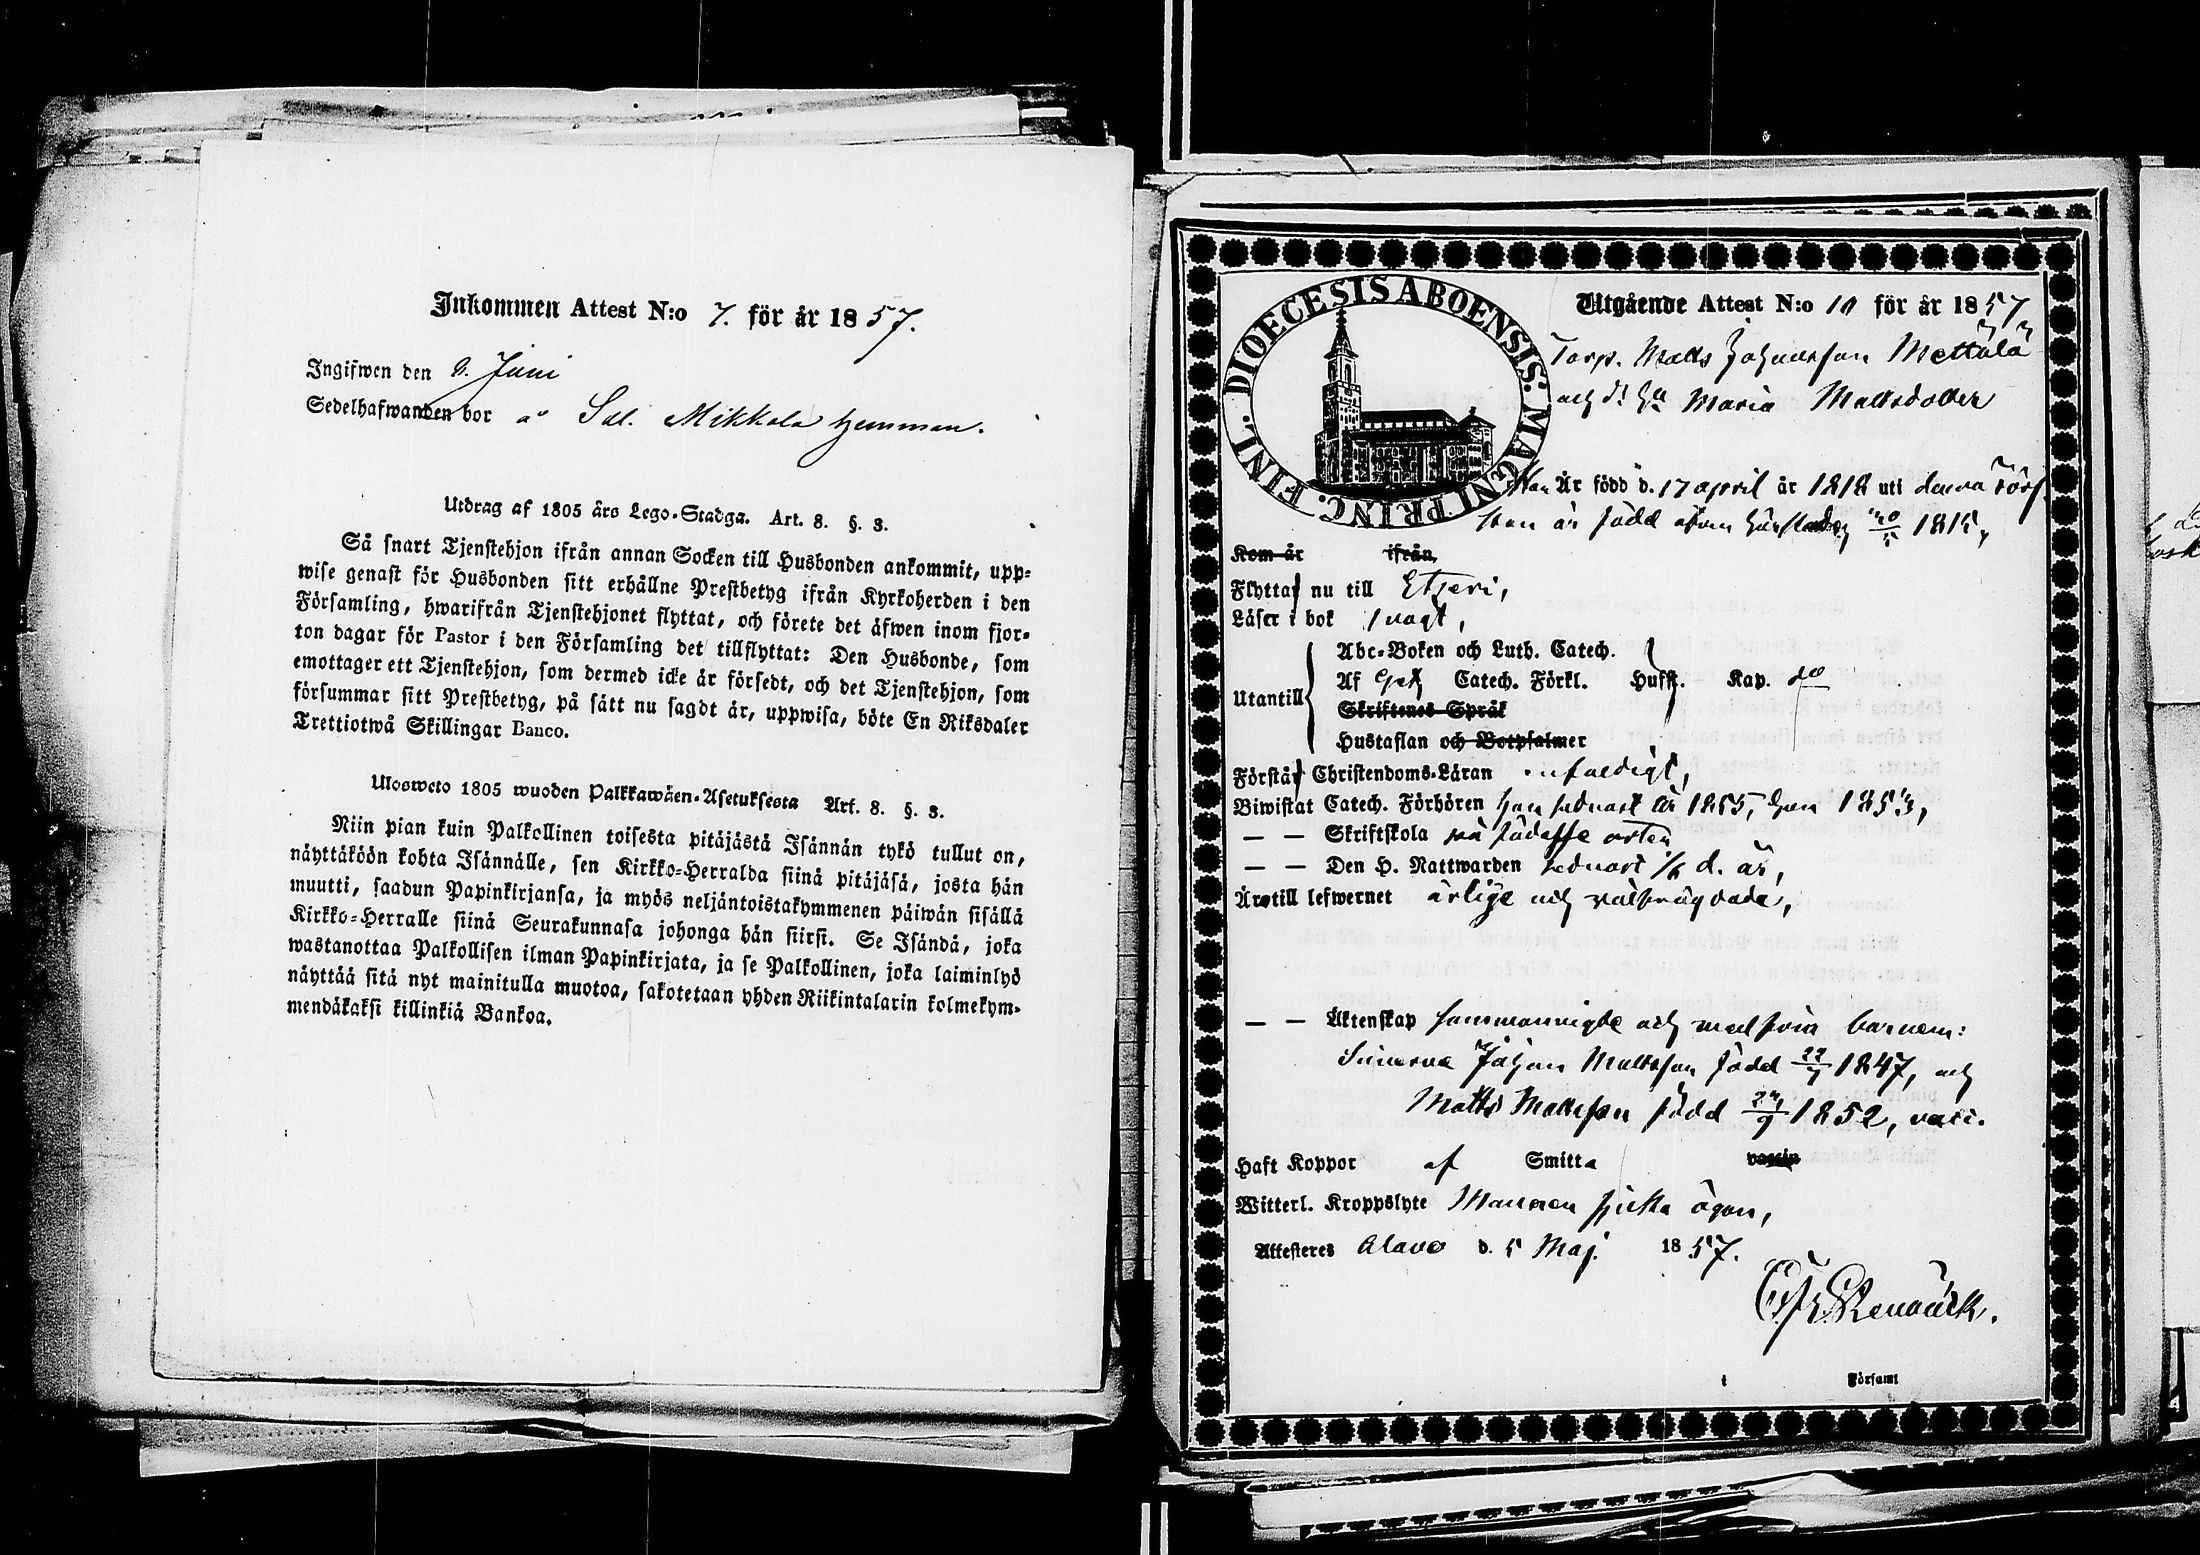 Inkommen Attest N:o 7. för år 1857.
Ingifwen den 9. Juni
Sedelhafwanden bor å Sal. Mikkola hemman.
Utdrag af 1805 års Lego-Stadga. Art. 8. §. 3.
Så snart Tjenstehjon ifrån annan Socken till Husbonden ankommit, upp-
wise genast för Husbonden sitt erhållne Prestbetyg ifrån Kyrkoherden i den
Församling, hwarifrån Tjenstehjonet flyttat, och förete det äfwen inom fjor-
ton dagar för Pastor i den Församling det tillflyttat: Den Husbonde, som
emottager ett Tjenstehjon, som dermed icke är försedt, och det Tjenstehjon, som
försummar sitt Prestbetyg, på sätt nu sagdt är, uppwisa, böte En Riksdaler
Trettiotwå Skillingar Banco.
Ulosweto 1805 wuoden Palkkawäen-Asetuksesta Art. 8. §. 3.
Niin pian kuin Palkollinen toisesta pitäjästä Isännän tykö tullut on,
näyttäköön kohta Isännälle, sen Kirkko-Herralda siinä pitäjäsä, josta hän
muutti, saadun Papinkirjansa, ja myös neljäntoistakymmenen päiwän sisällä
Kirkko-Herralle siinä Seurakunnasa johonga hän siirsi. Se Isändä, joka
wastanottaa Palkollisen ilman Papinkirjata, ja se Palkollinen, joka laiminlyö
näyttää sitä nyt mainitulla muotoa, sakotetaan yhden Riikintalarin kolmekym-
mendäkaksi killinkiä Bankoa.
DIOECESIS ABOENSIS. MAGNI PRINC. FINL.
Utgående Attest N:o 10 för år 1857
Torp. Matts Johansson Mettälä
och d: hu Maria Mattsdotter
Han Är född d. 17 april år 1818 uti denna Förs
hon är född äfven härstädes 1815,
Kom år ifrån
Flyttat nu till Etseri,
Läser i bok svagt,
Utantill
Abc-Boken och Luth. Catech.
Af Catech. Förkl. Hufst. Kap. do
Skriftenes Språk
Hustaflan och Botpsalmer
Förstår Christendoms-Läran enfaldigt,
Biwistat Catech. Förhören han sednast år 1855, hon 1853,
— — Skriftskola på födelse orten
— — Den H. Nattwarden sednast d. år,
Års till lefwernet ärlige och välfrägdade,
— — Äktenskap sammanvigde och med sina barnen:
Sönerna Johan Mattsson född 22/7 1847, och
Matts Mattsson född 24/9 1852, vacc.
Haft Koppor af Smitta vaccin
Witterl. Kroppslyte Mannen sjuka ögon,
Attesteres Alavo d. 5 Maj. 1857.
Församl